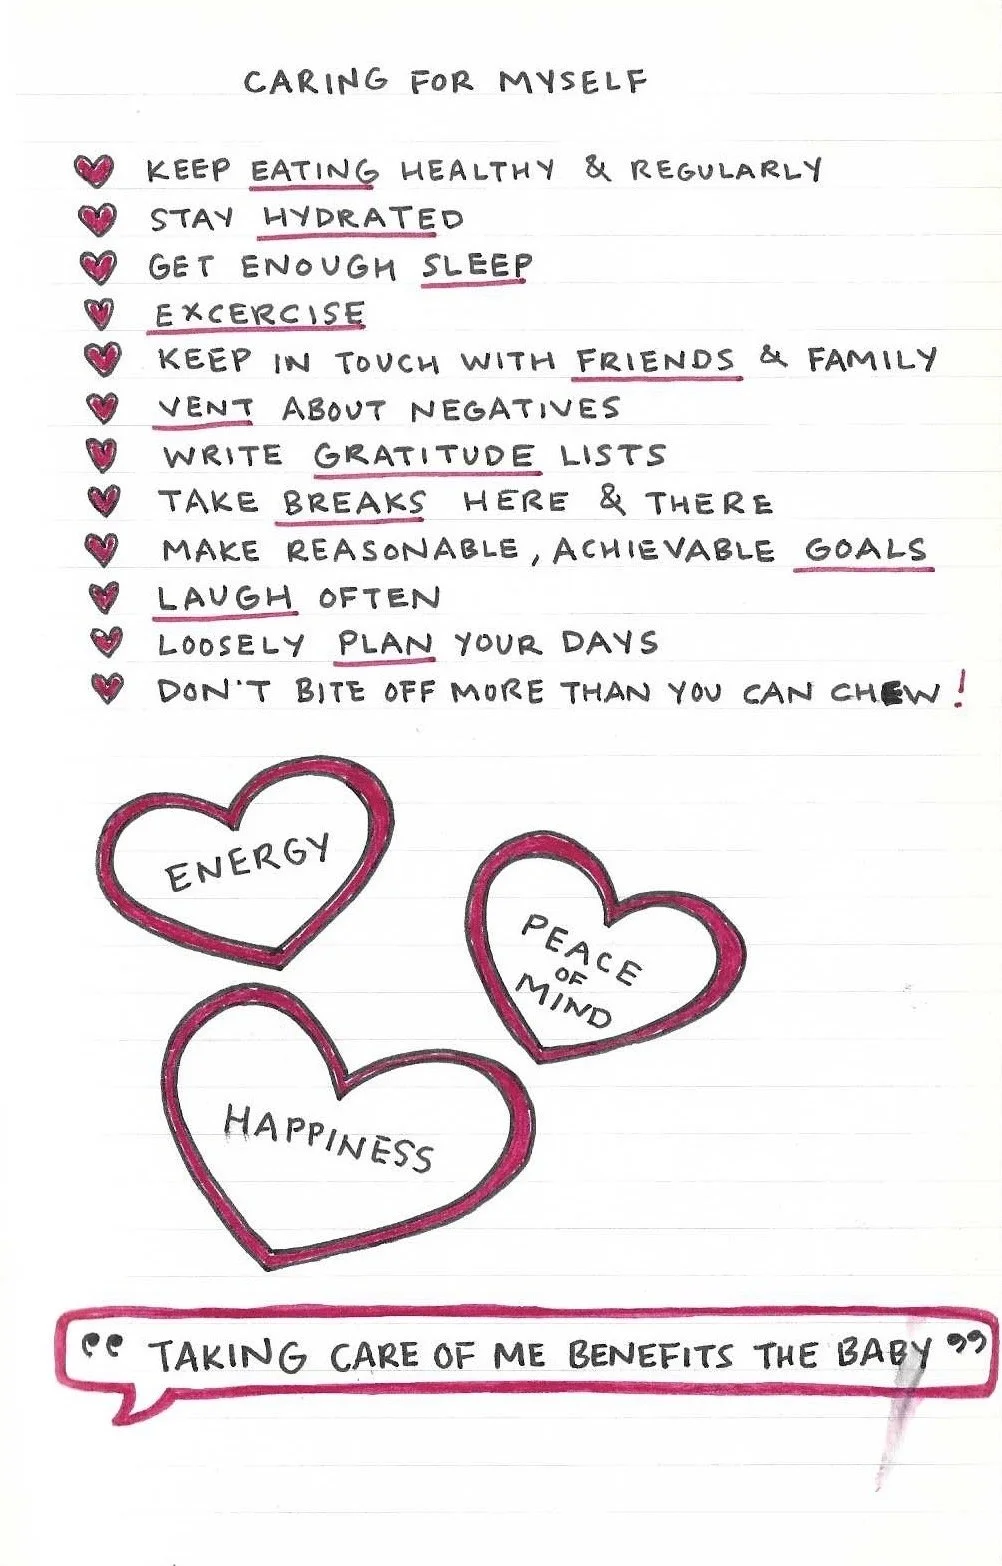 CARING FOR MYSELF
KEEP EATING HEALTHY & REGULARLY
STAY HYDRATED
GET ENOUGH SLEEP
EXCERCISE
KEEP IN TOUCH WITH FRIENDS & FAMILY
VENT ABOUT NEGATIVES
WRITE GRATITUDE LISTS
TAKE BREAKS HERE & THERE
MAKE REASONABLE, ACHIEVABLE GOALS
LAUGH OFTEN
LOOSELY PLAN YOUR DAYS
DON'T BITE OFF MORE THAN YOU CAN CHEW!
ENERGY
PEACE
OF
MIND
HAPPINESS
“TAKING CARE OF ME BENEFITS THE BABY”